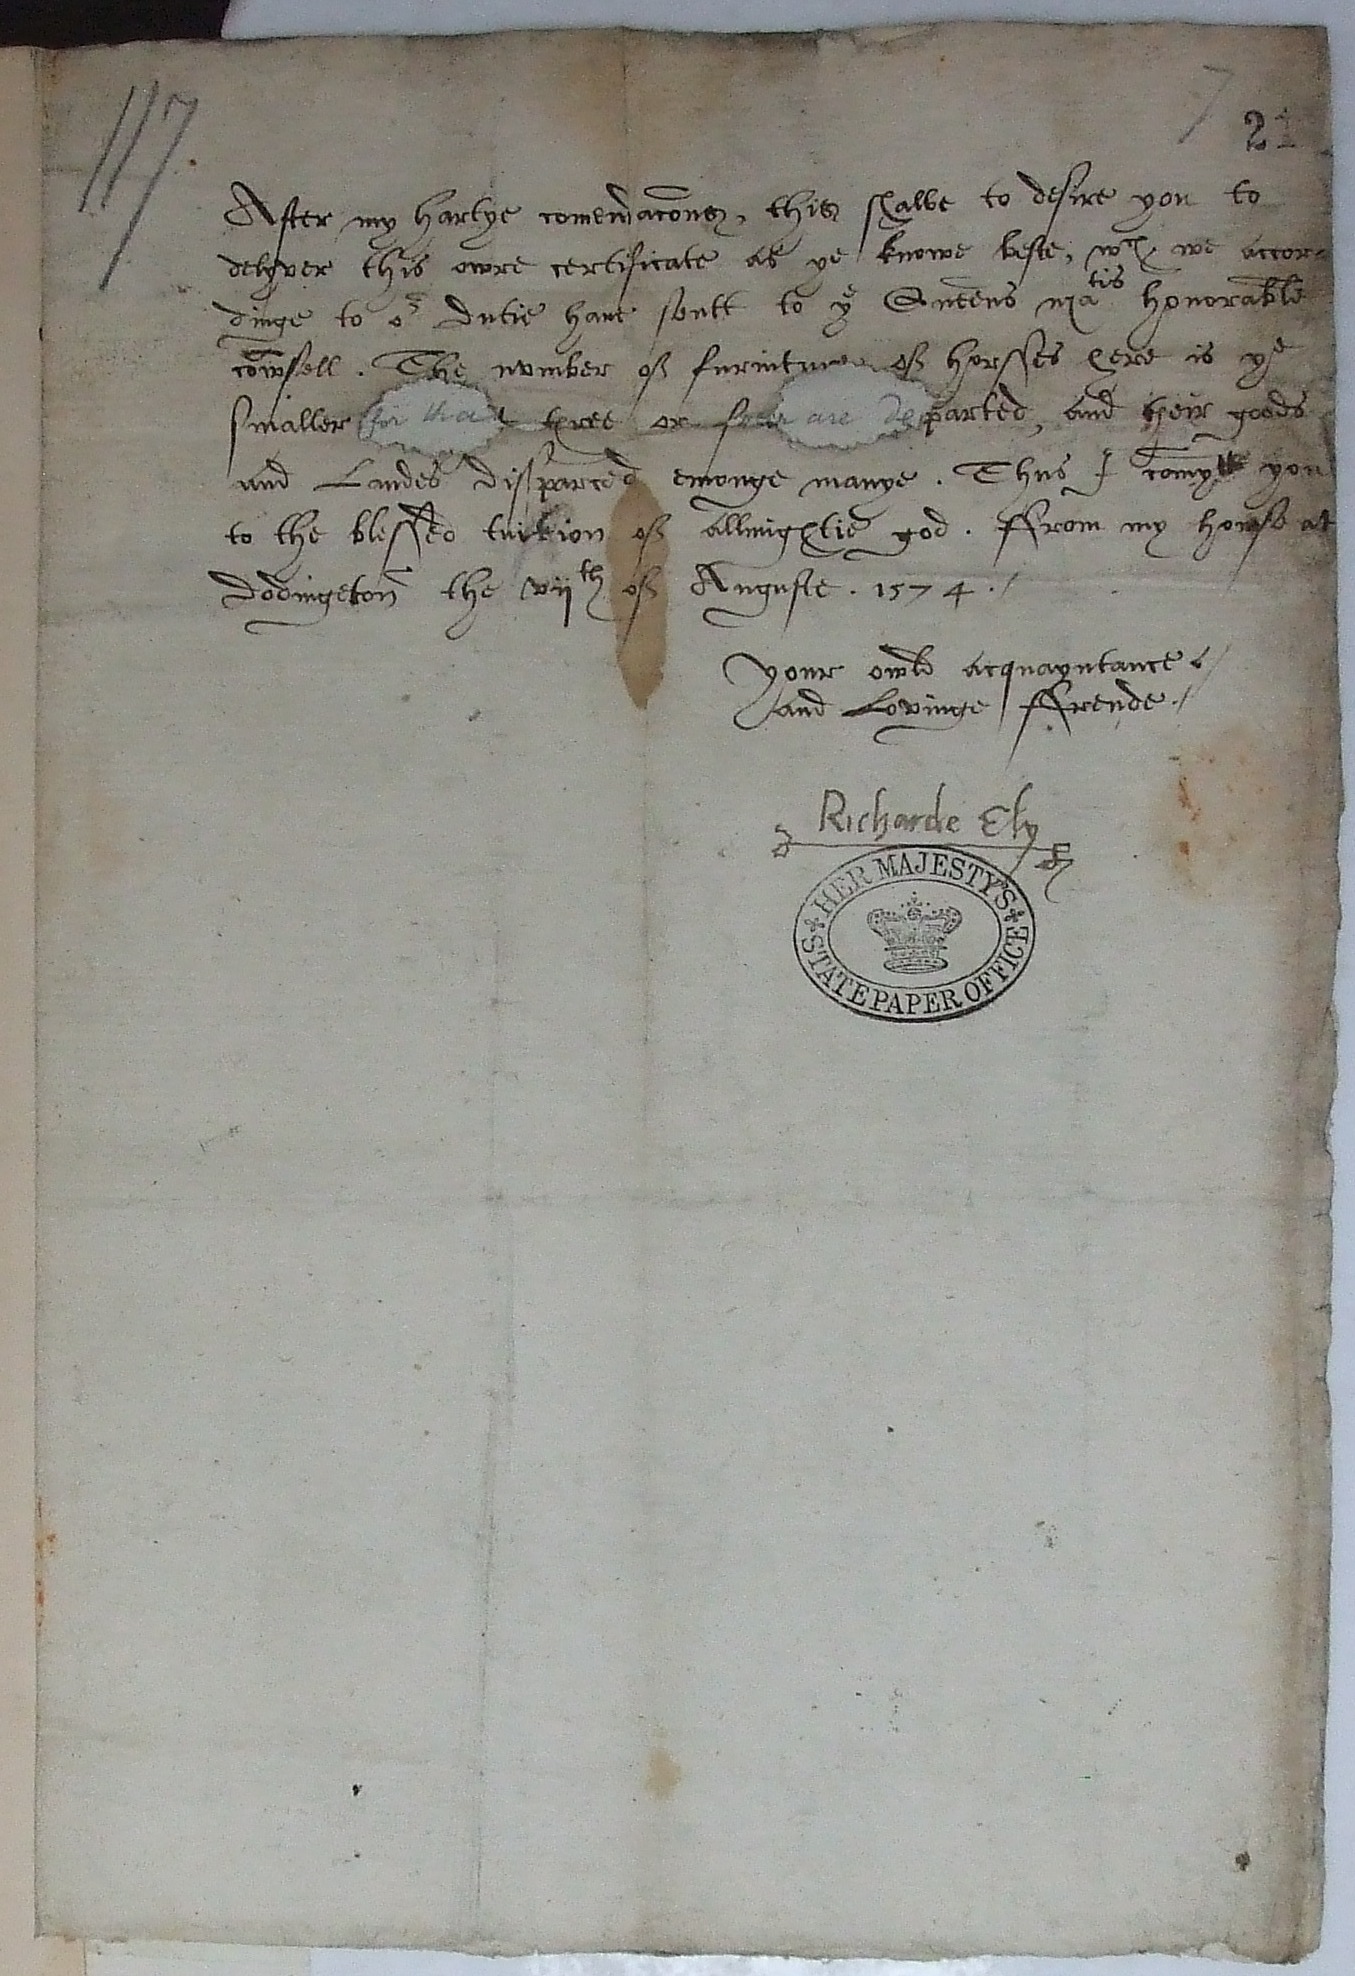 117
7
21
After my hartye comendacons, this shalbe to desire you to
delyver this owre certificate as ye knowe beste, wch we accor-
dinge to or dutie have sentt to ye Queens matis honorable
cownsell. The nvmber of furniture of horsses here is ye
smaller for that three or four are departed, and their goods
and Landes disparced emonge manye. Thus I comytt you
to the blessed tuition of allmightie god. ffrom my howse at
dodington the viith of Auguste. 1574.
your owld acquayntance
and Lovinge ffrende.
Richarde Ely
HER MAJESTY'S
STATE PAPER OFFICE